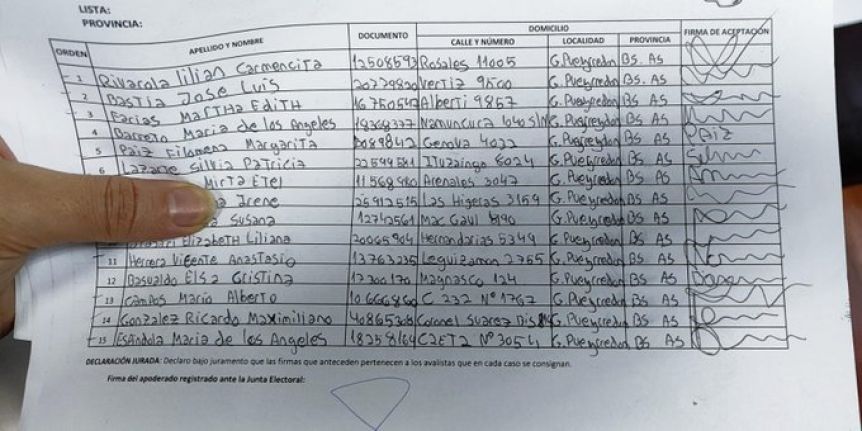 LISTA:
PROVINCIA:
ORDEN APELLIDO Y NOMBRE DOCUMENTO DOMICILIO FIRMA DE ACEPTACIÓN
CALLE Y NÚMERO LOCALIDAD PROVINCIA
1 Rivarola lilian Carmencita 12508593 Rosales 11005 G. Pueyrredon BS. AS
2 Bastia Jose Luis Vertiz 9500 G. Pueyrredon BS. AS
3 Farias MarTHa EdiTH Alberti 9857 G. Pueyrredon BS AS
4 Barreto Maria de los Angeles Namuncura G. Pueyrredon BS AS
5 Paiz Filomena Margarita Genova 4022 G. Pueyrredon BS AS Paiz
6 Silvia Patricia Ituzaingo 8024 G. Pueyrredon BS AS
Mirta Etel Arenales 3047 G. Pueyrredon BS AS
Irene 25912515 Las Higeras 3159 G. Pueyrredon BS AS
Susana 12742561 Mac Gaul G. Pueyrredon BS AS
ElizabeTH Liliana 20065904 Hernandarias 5349 G. Pueyrredon BS AS
11 Herrera Vicente Anastasio 13763235 Leguizamon 2755 G. Pueyrredon BS AS
12 Basualdo Elsa Cristina 17300170 Magnasco 124 G. Pueyrredon BS AS
13 Campos Mario Alberto C 232 N° 1762 G. Pueyrredon BS AS
14 Gonzalez Ricardo Maximiliano Coronel Suarez G. Pueyrredon BS AS
15 Espindola Maria de los Angeles 18258164 N° 3054 G. Pueyrredon BS AS
DECLARACIÓN JURADA: Declaro bajo juramento que las firmas que anteceden pertenecen a los avalistas que en cada caso se consignan.
Firma del apoderado registrado ante la Junta Electoral: